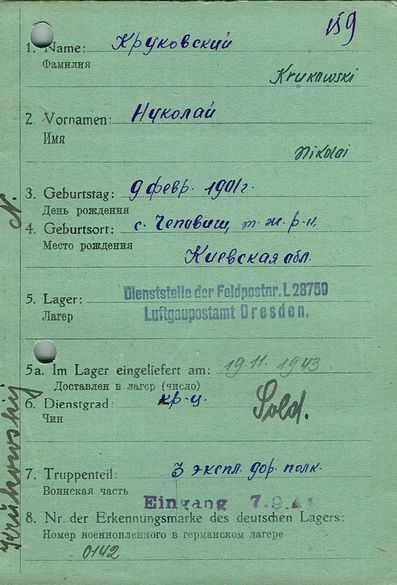 159
1. Name: Круковский
Фамилия
Krukowski
2. Vornamen: Николай
Имя
Nikolai
3. Geburtstag: 9 февр. 1901 г.
День рождения
4. Geburtsort: с.
Место рождения
Киевская обл.
5. Lager: Dienststelle der Feldpostnr. L 28759
Лагер Luftgaupostamt Dresden.
5a. Im Lager eingeliefert am: 19.11.1943
Доставлен в лагер (число)
6. Dienstgrad: кр-ц. Sold.
Чин
7. Truppenteil: 3 экспл. дор. полк.
Воинская часть
Eingang 7.9.
8. Nr. der Erkennungsmarke des deutschen Lagers:
Номер военнопленного в германском лагере
0142
Krukowskij N.